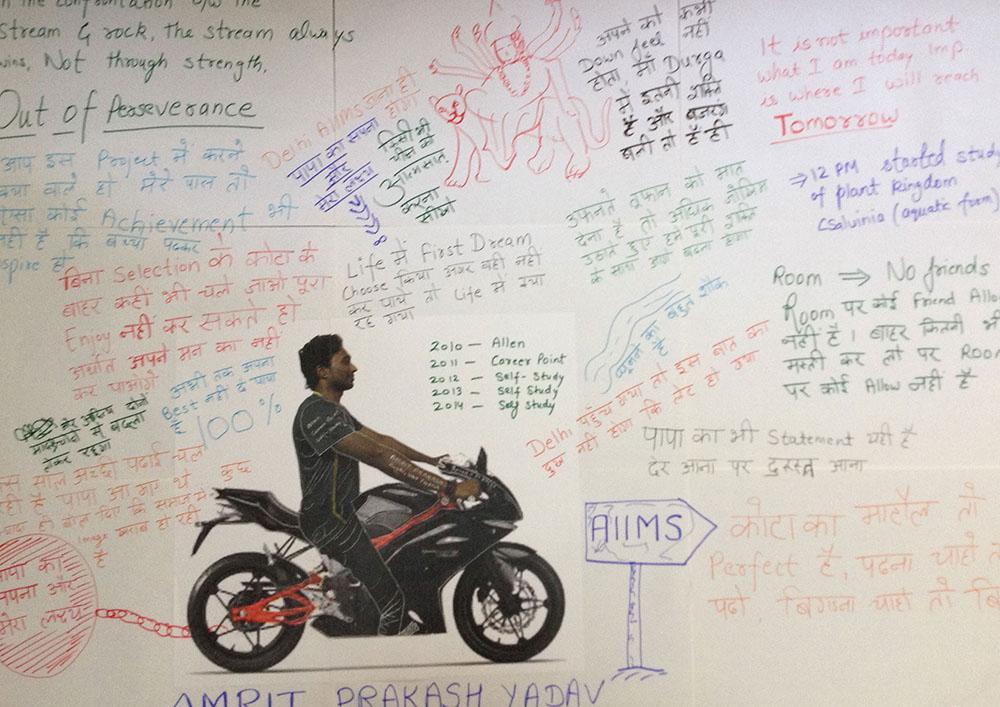 in the confrontation b/w the
Stream & rock, the stream always
wins, Not through strength,
Out of Perseverance
आप इस Project में करने
क्या वाले हो मेरे पास तो
ऐसा कोई Achievement भी
नहीं है कि बच्चा पढ़कर
inspire हो
Delhi AIIMS जाना ही
होगा
पापा का सपना
और
मेरा लक्ष्य
किसी भी
चीज को
आत्मसात
करना
सीखो
अपने को कभी
Down feel नहीं
होता, माँ Durga
में इतनी शक्ति
है और बजरंग
बली तो है ही
It is not important
what I am today Imp.
is where I will reach
Tomorrow
→ 12 PM started study
of plant kingdom
(Salvinia (aquatic fern)
उफानते तूफान को मात
देना है तो अधिक जोखिम
उठाते हुए हमें पूरी शक्ति
के साथ आगे बढ़ना होगा
बिना Selection के कोटा के
बाहर कहीं भी चले जाओ पूरा
Enjoy नहीं कर सकते हो
अर्थात अपने मन का नहीं
कर पाओगे
Life में First Dream
Choose किया अगर वही नहीं
कर पाये तो Life में क्या
रह गया
Room ⇒ No friends
Room पर कोई Friend Allow
नहीं है। बाहर कितनी भी
मस्ती कर लो पर Room
पर कोई Allow नहीं है
2010 — Allen
2011 — Career Point
2012 — Self-Study
2013 — Self Study
2014 — Self Study
घूमने का बहुत शौक
है
अभी तक अपना
Best नहीं दे पाया
है 100%
लेकर रहूगा
Delhi पहुँच गया तो इस बात का
दुख नहीं होगा कि लेट हो गया
पापा का भी Statement यही है
देर आना पर दुरुस्त आना
इस साल अच्छी पढ़ाई चल
रही है पापा आ गए थे कुछ
Image खराब हो रही
है
पापा का
सपना और
मेरा लक्ष्य
AIIMS
कोटा का माहौल तो
Perfect है, पढ़ना चाहो तो
पढ़ो, बिगड़ना चाहो तो
AMRIT PRAKASH YADAV